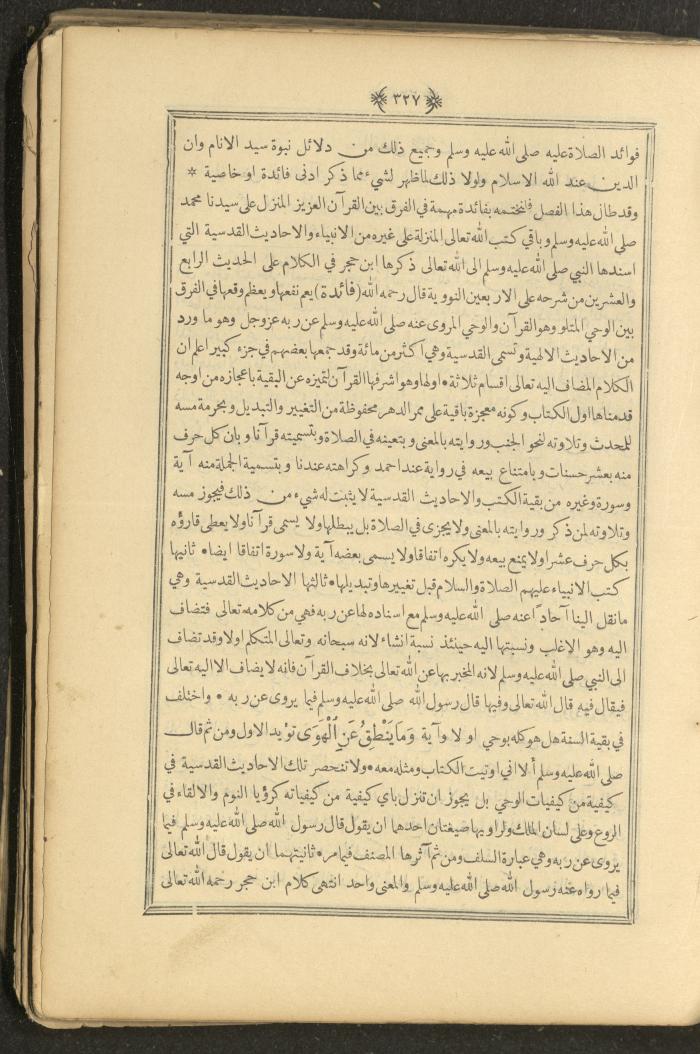 ٣٢٧
فوائد الصلاة عليه صلى الله عليه وسلم وجميع ذلك من دلائل نبوة سيد الانام وان
الدين عند الله الاسلام ولولا ذلك لما ظهر لشيء مما ذكر ادنى فائدة او خاصية *
وقد طال هذا الفصل فلنختمه بفائدة مهمة في الفرق بين القرآن العزيز المنزل على سيدنا محمد
صلى الله عليه وسلم وباقي كتب الله تعالى المنزلة على غيره من الانبياء والاحاديث القدسية التي
اسندها النبي صلى الله عليه وسلم الى الله تعالى ذكرها ابن حجر في الكلام على الحديث الرابع
والعشرين من شرحه على الاربعين النووية قال رحمه الله (فائدة) يعم نفعها ويعظم وقعها في الفرق
بين الوحي المتلو وهو القرآن والوحي المروى عنه صلى الله عليه وسلم عن ربه عز وجل وهو ما ورد
من الاحاديث الالهية وتسمى القدسية وهي اكثر من مائة وقد جمعها بعضهم في جزء كبير اعلم ان
الكلام المضاف اليه تعالى اقسام ثلاثة • اولها وهو اشرفها القرآن لتميزه عن البقية باعجازه من اوجه
قدمناها اول الكتاب وكونه معجزة باقية على ممر الدهر محفوظة من التغيير والتبديل وبحرمة مسه
للمحدث وتلاوته لنحو الجنب وروايته بالمعنى وبتعينه في الصلاة وبتسميته قرآنا وبان كل حرف
منه بعشر حسنات وبامتناع بيعه في رواية عند احمد وكراهته عندنا وبتسمية الجملة منه آية
وسورة وغيره من بقية الكتب والاحاديث القدسية لا يثبت له شيء من ذلك فيجوز مسه
وتلاوته لمن ذكر وروايته بالمعنى ولا يجزى في الصلاة بل يبطلها ولا يسمى قرآنا ولا يعطى قارؤه
بكل حرف عشرا ولا يمنع بيعه ولا يكره اتفاقا ولا يسمى بعضه آية ولا سورة اتفاقا ايضا • ثانيها
كتب الانبياء عليهم الصلاة والسلام قبل تغييرها وتبديلها • ثالثها الاحاديث القدسية وهي
ما نقل الينا آحادًا عنه صلى الله عليه وسلم مع اسناده لها عن ربه فهي من كلامه تعالى فتضاف
اليه وهو الاغلب ونسبتها اليه حينئذ نسبة انشاء لانه سبحانه وتعالى المتكلم اولا وقد تضاف
الى النبي صلى الله عليه وسلم لانه المخبر بها عن الله تعالى بخلاف القرآن فانه لا يضاف الا اليه تعالى
فيقال فيه قال الله تعالى وفيها قال رسول الله صلى الله عليه وسلم فيما يروى عن ربه • واختلف
في بقية السنة هل هو كله بوحي او لا وآية وَمَا يَنْطِقُ عَنِ ٱلْهَوَى تؤيد الاول ومن ثم قال
صلى الله عليه وسلم ألا اني اوتيت الكتاب ومثله معه • ولا تنحصر تلك الاحاديث القدسية في
كيفية من كيفيات الوحي بل يجوز ان تنزل باي كيفية من كيفياته كرؤيا النوم والالقاء في
الروع وعلى لسان الملك ولراويها صيغتان احدها ان يقول قال رسول الله صلى الله عليه وسلم فيما
يروى عن ربه وهي عبارة السلف ومن ثم آثرها المصنف فيما مر • ثانيتهما ان يقول قال الله تعالى
فيما رواه عنه رسول الله صلى الله عليه وسلم والمعنى واحد انتهى كلام ابن حجر رحمه الله تعالى